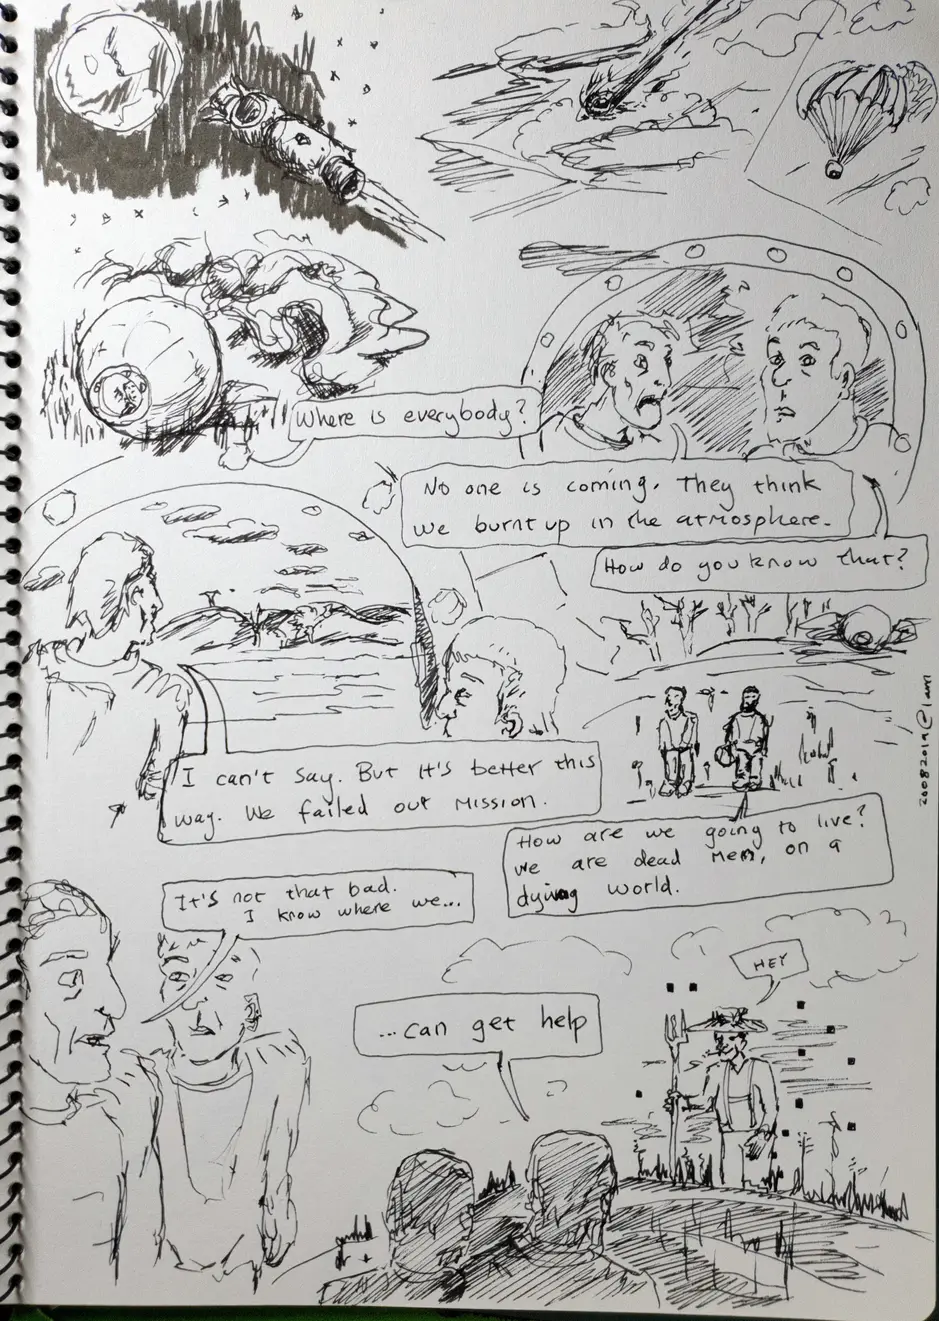 Where is everybody?
No one is coming. They think
we burnt up in the atmosphere.
How do you know that?
I can't say. But it's better this
way. We failed our mission.
How are we going to live?
we are dead men, on a
dying world.
It's not that bad.
I know where we...
...can get help
HEY
20082019@1am